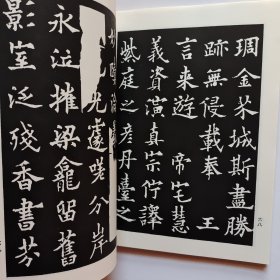 琱金城斯盡勝
跡無侵載奉 王
言来遊 帝宅慧
義資演真宗佇譯
紫庭之彦丹臺之
六八
光遽嗟分岸
永泣摧梁龕留舊
影室泛殘香書芬